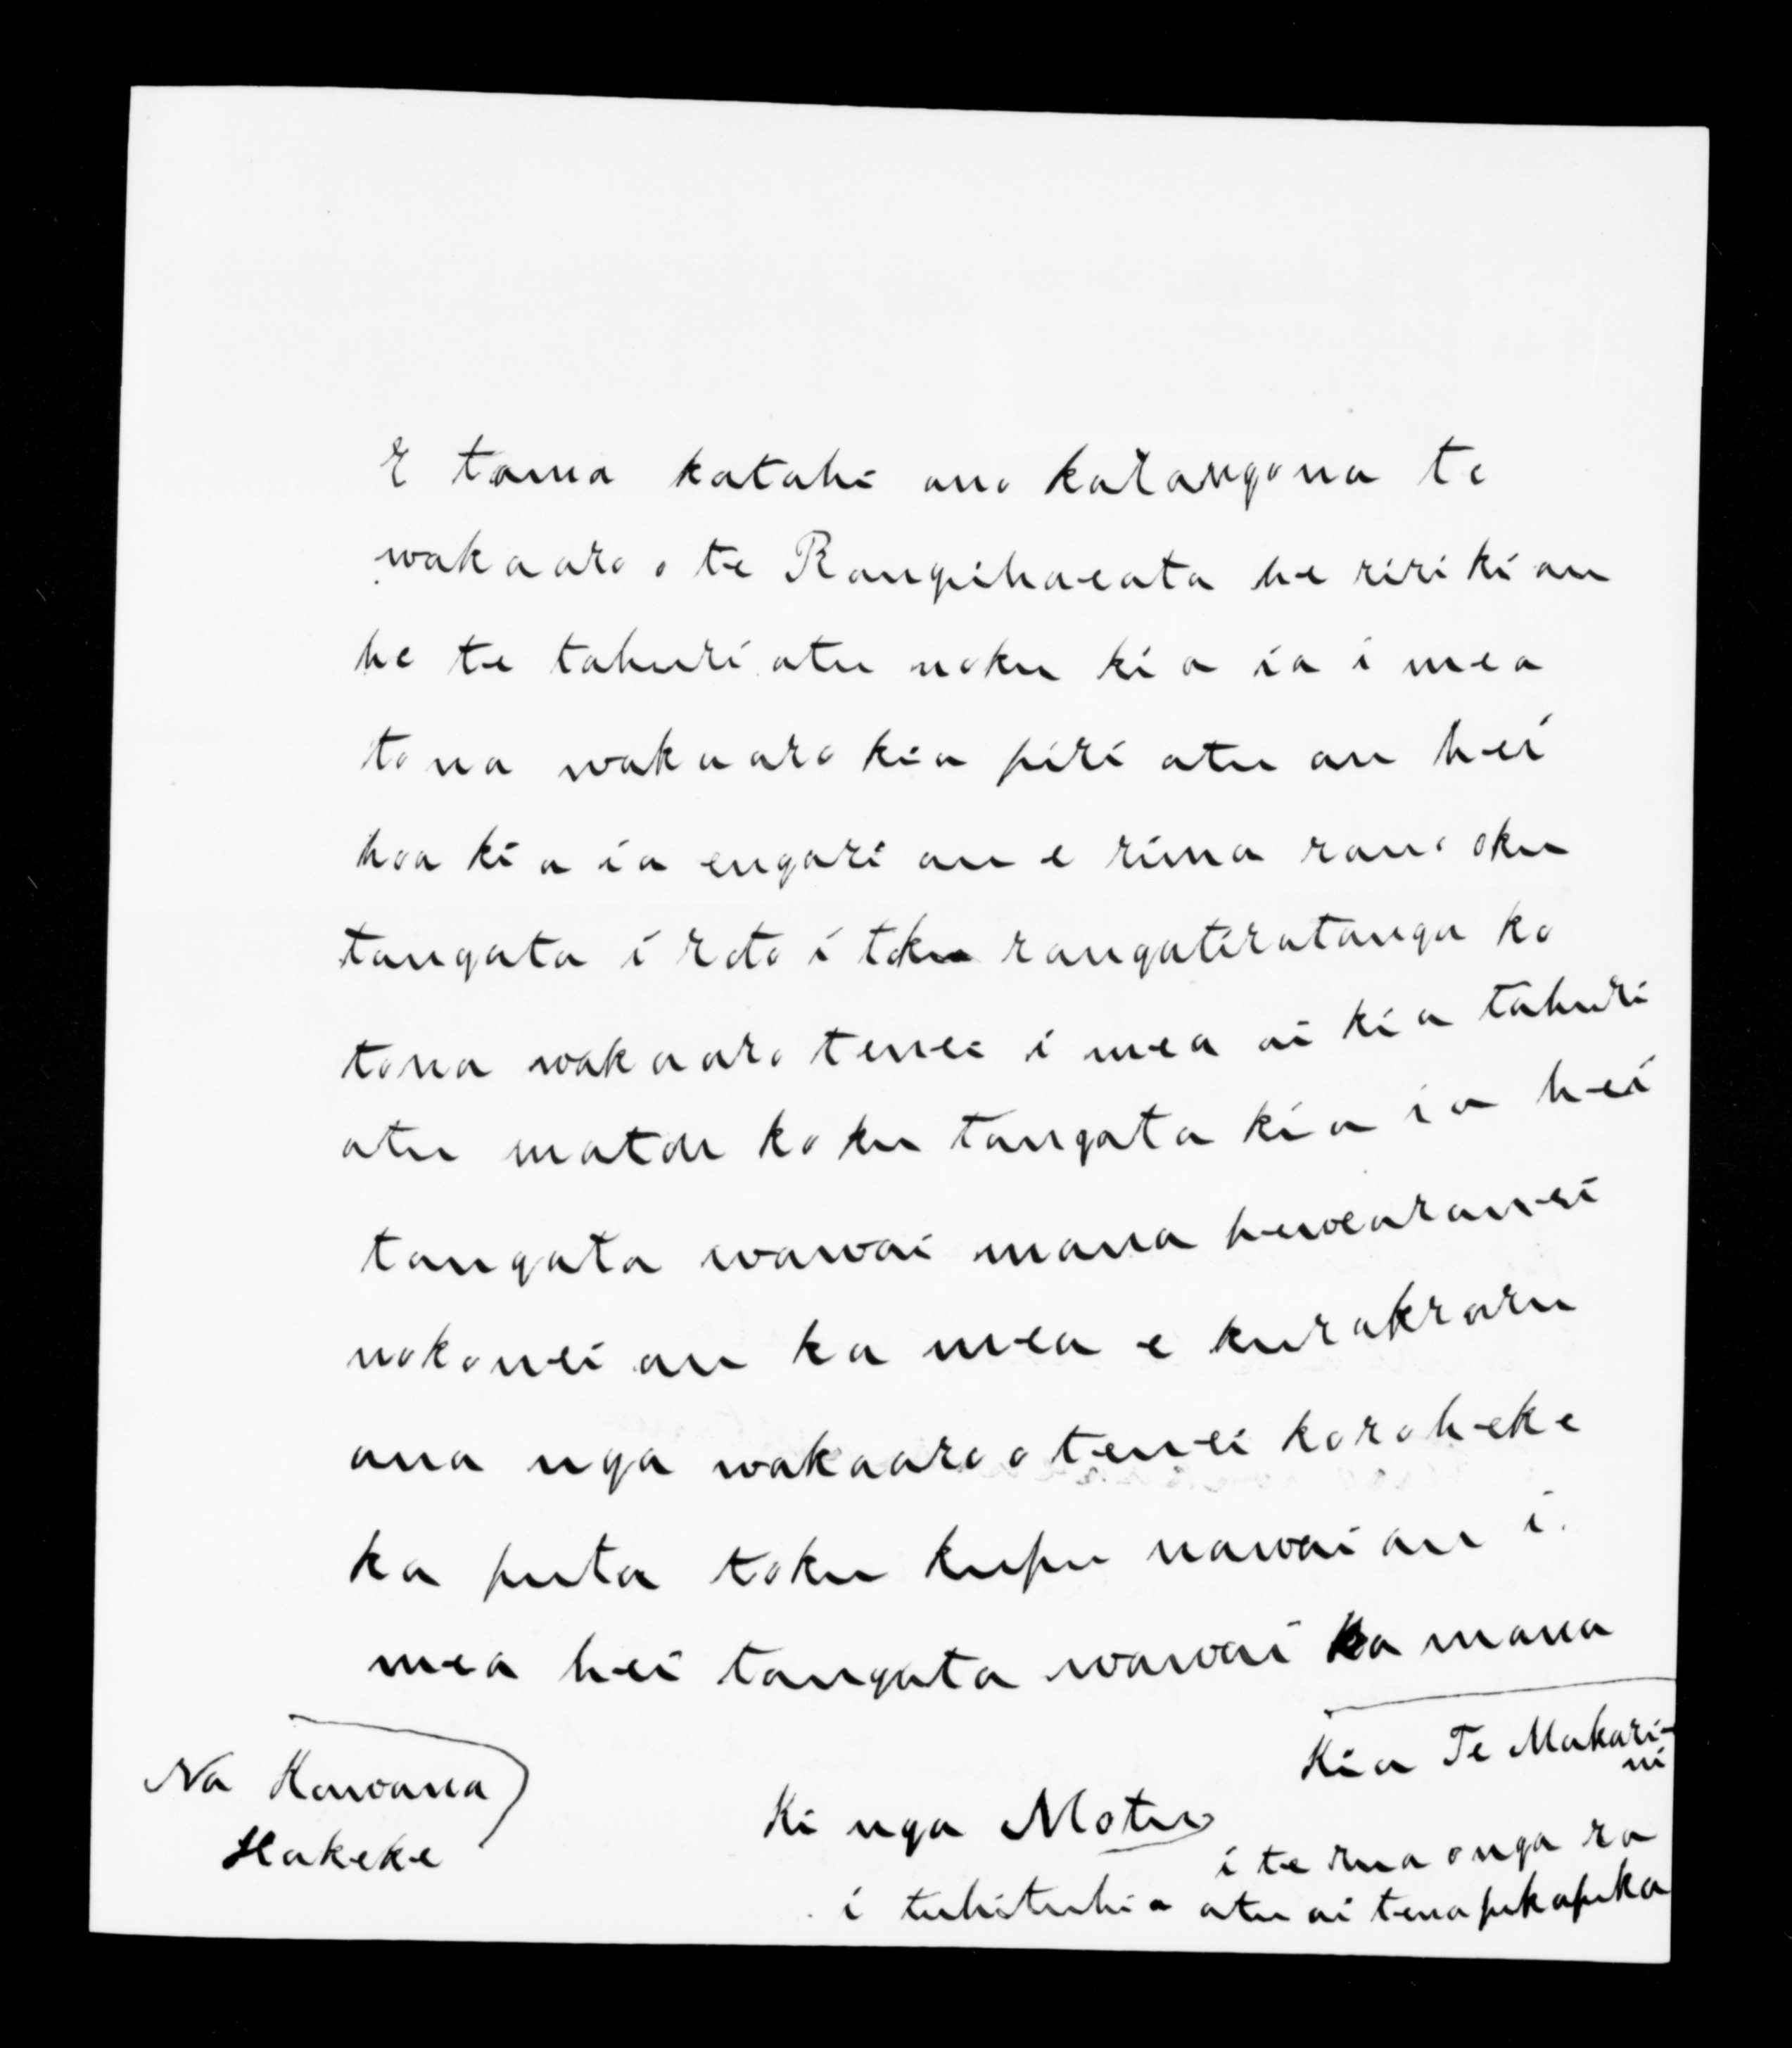 E tama katahi ano ka rangona te
wakaaro o te Rangihaeata he riri ki au
he te tahuri atu noku ki a ia i mea
tona wakaaro kia piri atu au hei
hoa ki a ia engari au e rima rau o oku
tangata i roto i toku rangatiratanga ko
tona wakaaro tenei i mea ai ki a tahuri
atu matou ko ku tangata ki a ia hei
tangata wawai mana
nokonei au ka mea e kurakraru
ana nga wakaaro o tenei koroheke
ka puta toku kupu nawai au i
mea hei tangata wawai ka mana
Na Kawana
Hakeke
Kia Te Makari-
ni
Ki nga Motu
i te rua o nga ra
i tuhituhia atu ai tena pukapuka